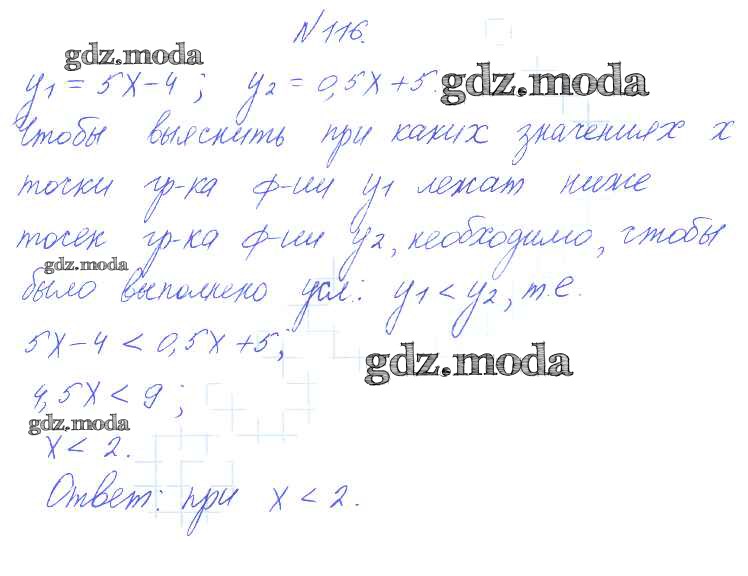 N 116.
gdz.moda
y₁ = 5x-4; y₂ = 0,5x+5.
gdz.moda
Чтобы выяснить при каких значениях x
точки гр-ка ф-ии y₁ лежат ниже
точек гр-ка ф-ии y₂, необходимо, чтобы
gdz.moda
было выполнено усл.: y₁ < y₂, т.е.
5x-4 < 0,5x+5;
gdz.moda
4,5x < 9;
gdz.moda
x < 2.
Ответ: при x < 2.